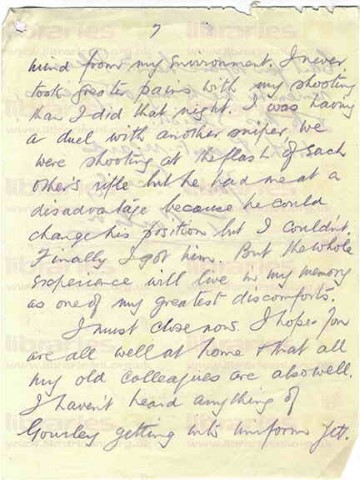 7
mind from my environment. I never
took greater pains with my shooting
than I did that night. I was having
a duel with another sniper, we
were shooting at the flash of each
other's rifle but he had me at a
disadvantage because he could
change his position but I couldn't.
Finally I got him. But the whole
experience will live in my memory
as one of my greatest discomforts.
I must close now. I hope you
are all well at home & that all
my old colleagues are also well.
I haven't heard anything of
Gourley getting into uniform yet.